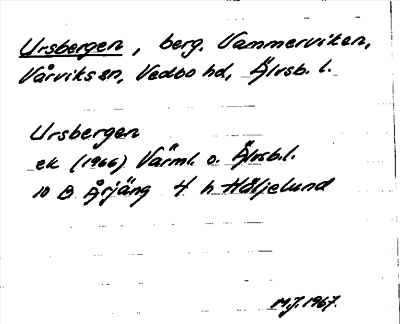 Ursbergen, berg. Vammerviken,
Vårviks sn, Vedbo hd, Älvsb. l.
Ursbergen
ek (1966) Värml. o. Älvsb.l.
10 B Årjäng 4 h Höljelund
M.J. 1967.